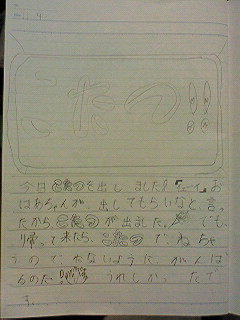 こたつ!!
今日こたつを出しました!
はあちゃんが、出してもらいなと、言っ
たから、こたつが出ました。でも、
帰って来たら、こたつでねちゃ
うのでねないようにがんば
るのだ!うれしかったで
す。